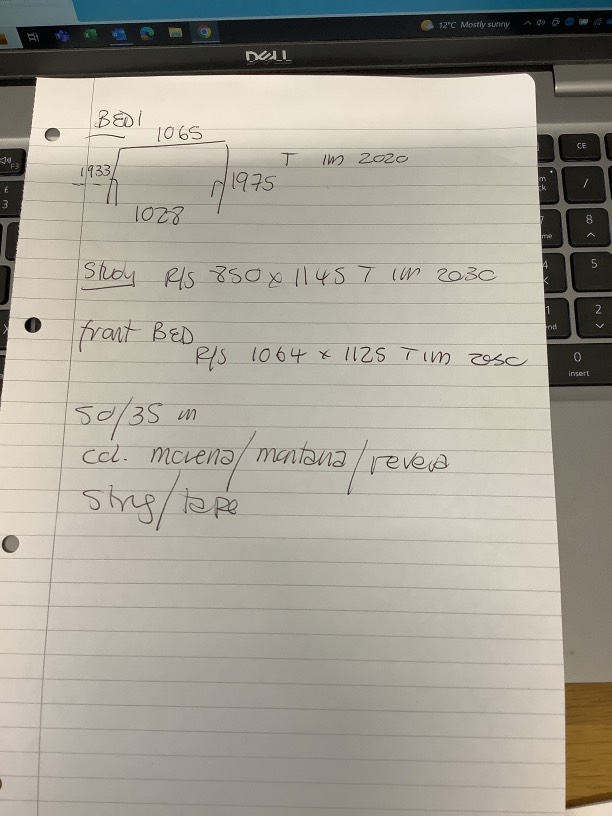 12°C Mostly sunny
DELL
BED1
1065
T 1m 2020
1933
1975
1028
Study R/S 850 x 1145 T 1m 2030
front BED
R/S 1064 x 1125 T 1m 2050
50/35 m
col. morena/montana/revera
String/tape
F3
£
3
CE
/
8
5
2
0
insert